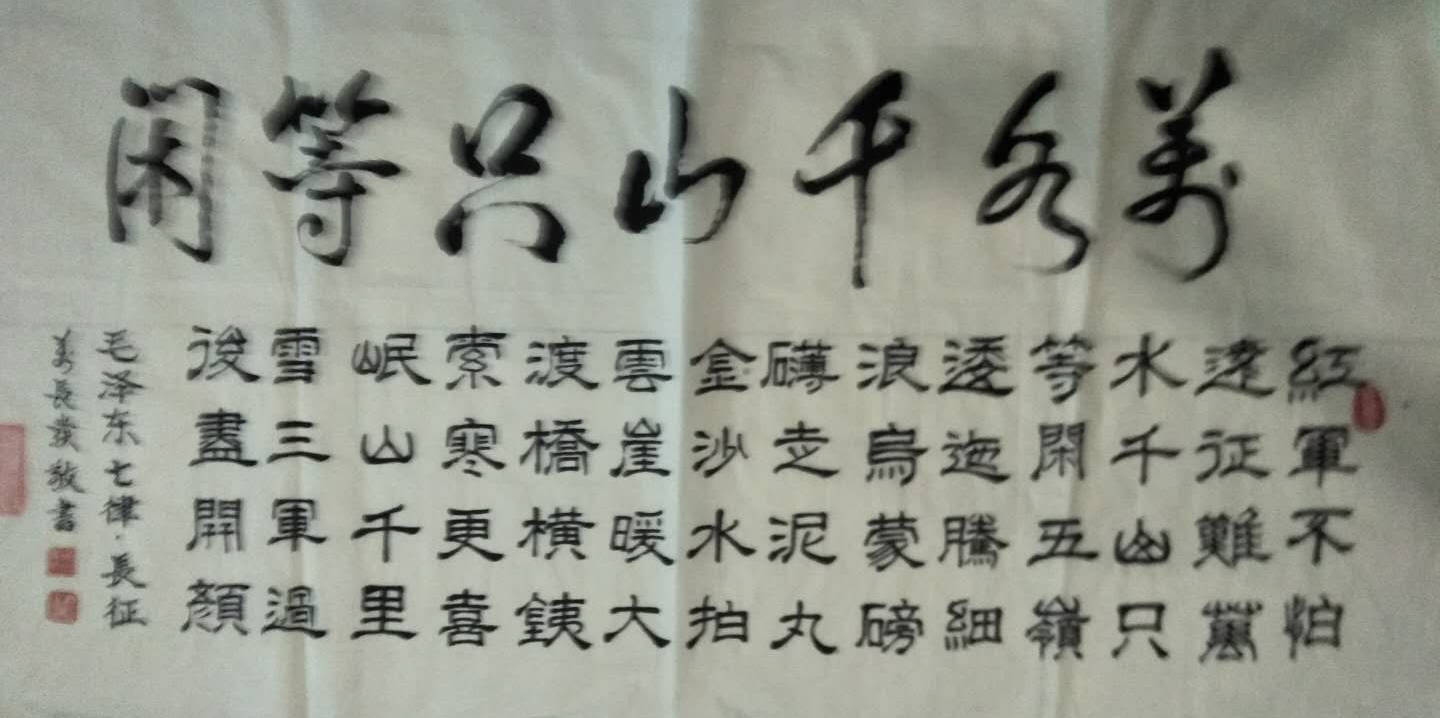 萬水千山只等閑
紅軍不怕
遠征難萬
水千山只
等閑五嶺
逶迤騰細
浪烏蒙磅
礴走泥丸
金沙水拍
雲崖暖大
渡橋橫銕
索寒更喜
岷山千里
雪三軍過
後盡開顏
毛泽东七律·長征
姜長發敬書